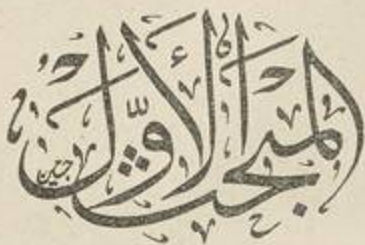 المبحث الأوّل